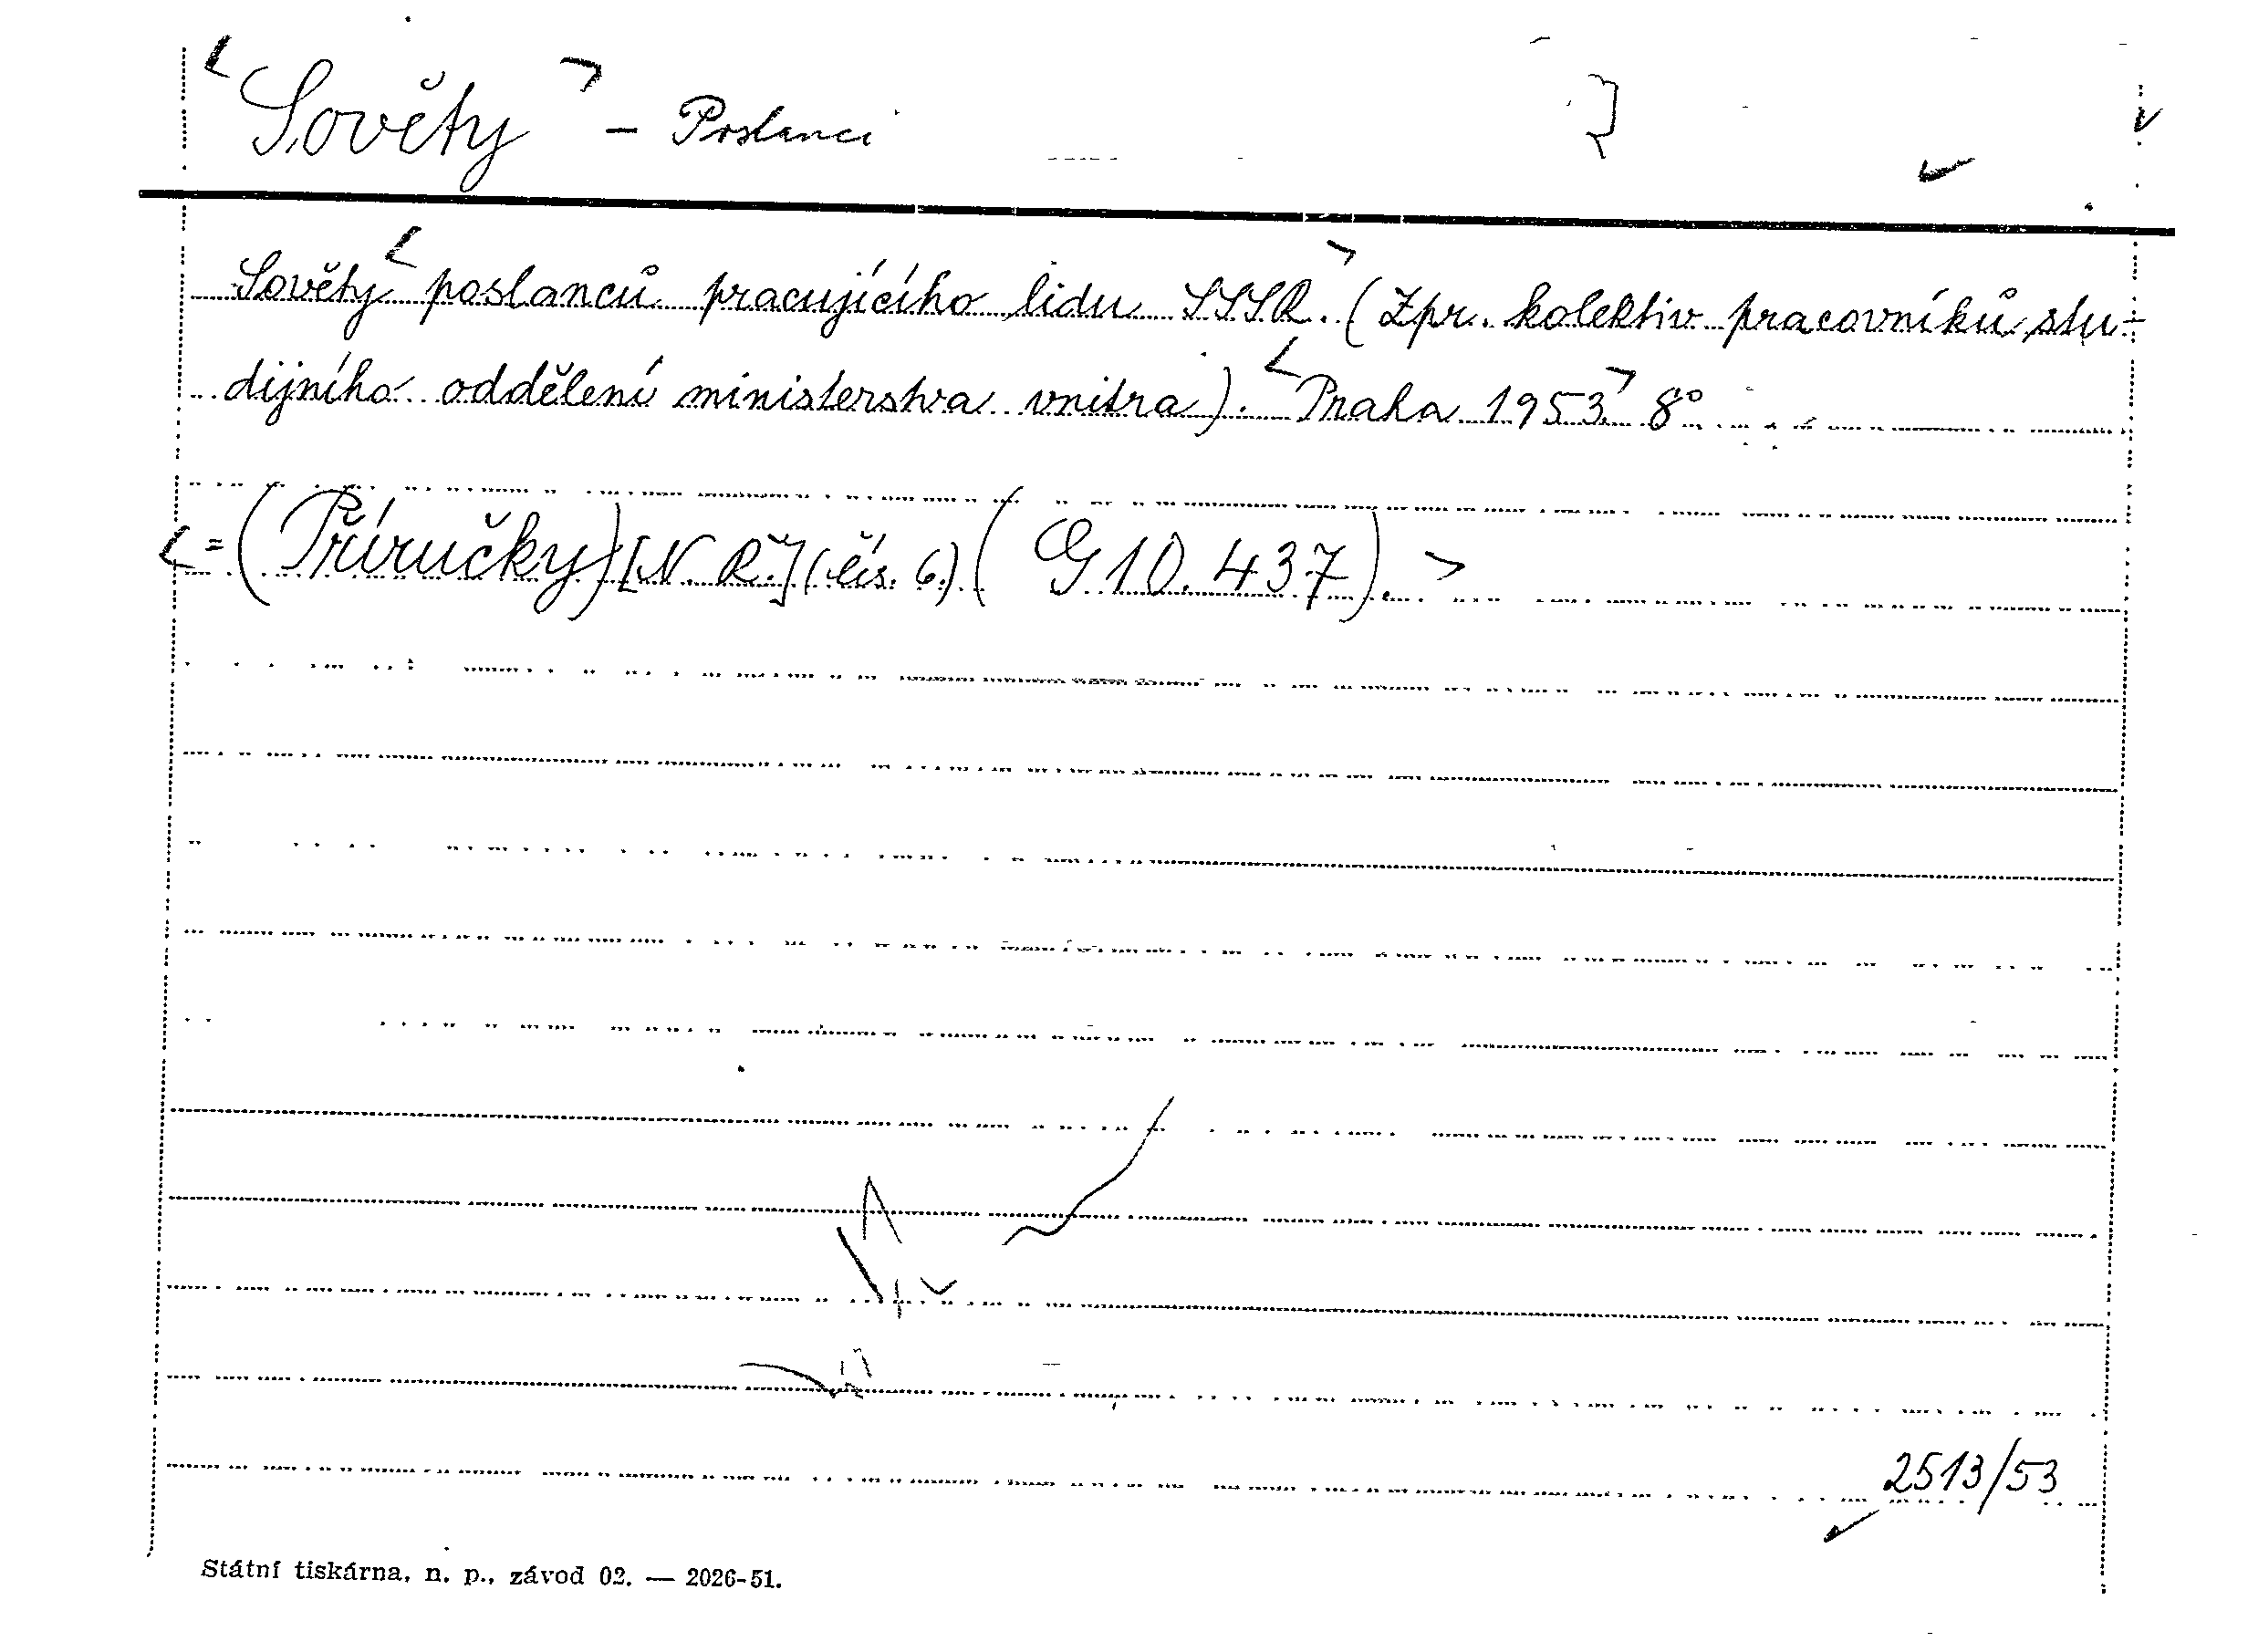 Sověty - Poslanci
Sověty poslanců pracujícího lidu SSSR. (Zpr. kolektiv pracovníků stu-
dijního oddělení ministerstva vnitra). Praha 1953. 8°
= (Příručky) [N. Ř.] (čís. 6.) (G 10.437).
2513/53
Státní tiskárna, n. p., závod 02. — 2026-51.